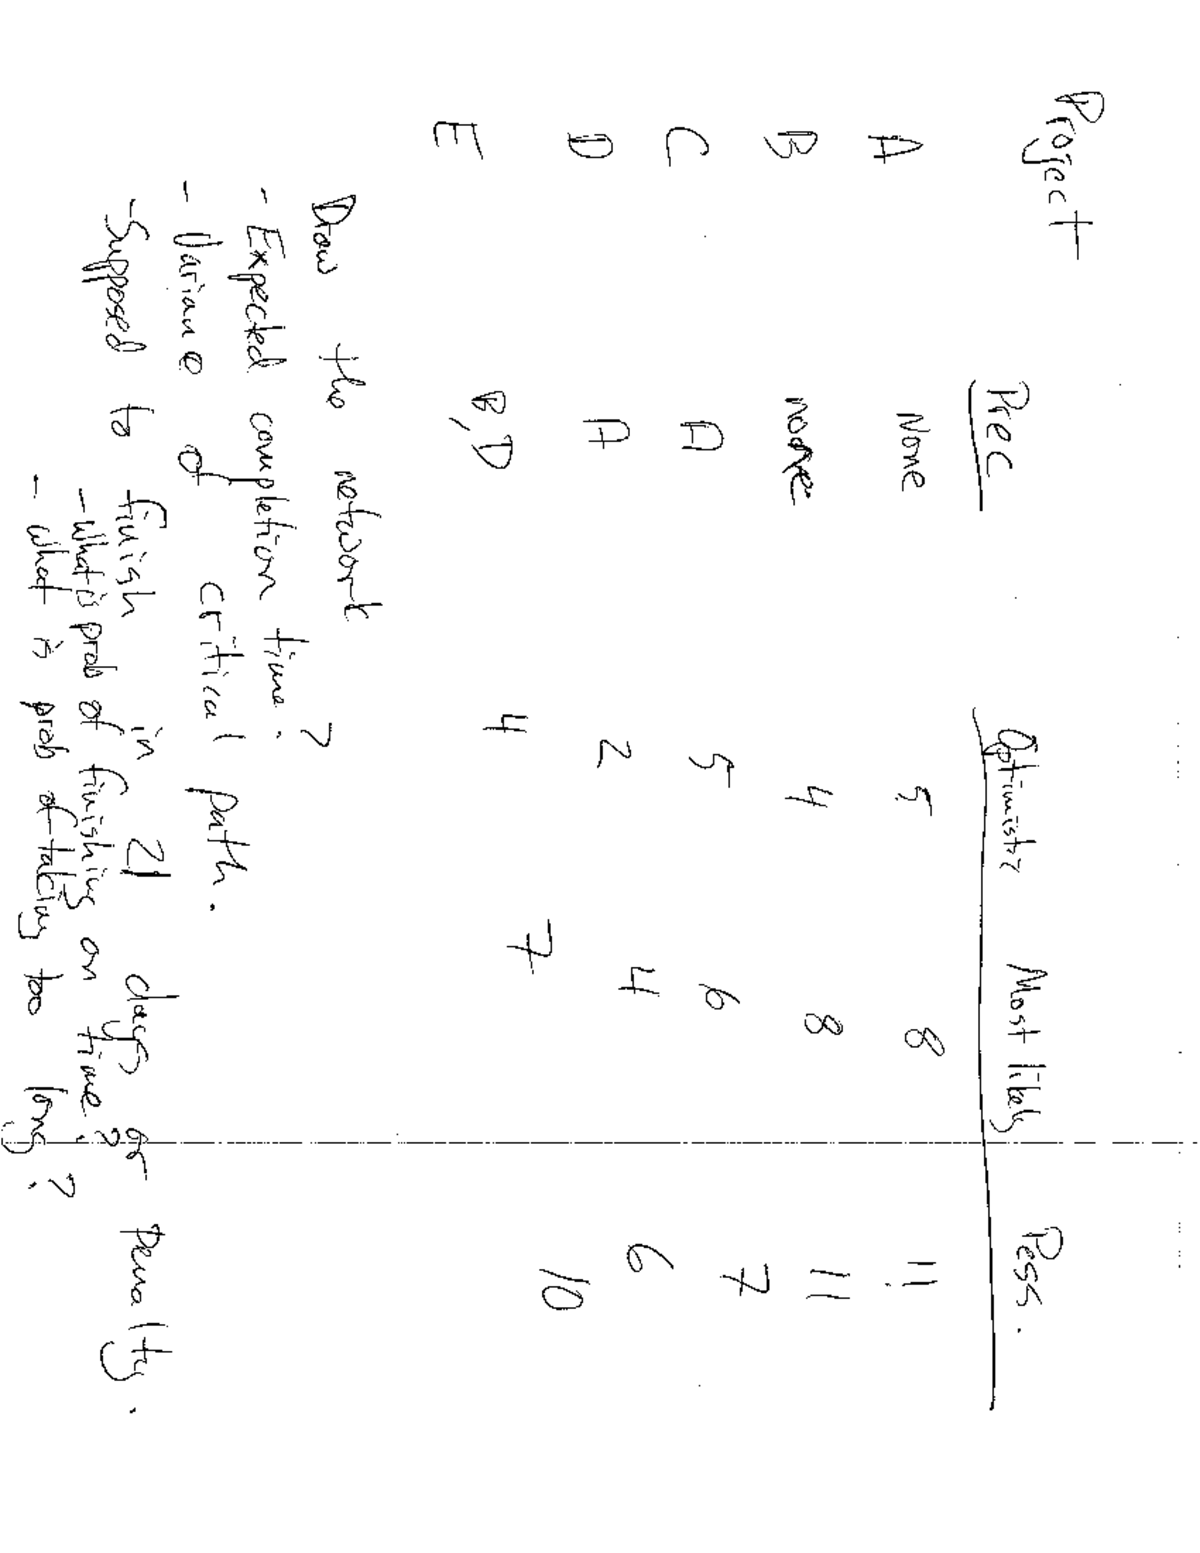 Project Prec Optimistic Most likely Pess.
A None 5 8 11
B none 4 8 11
C A 5 6 7
D A 2 4 6
E B,D 4 7 10
Draw the network
- Expected completion time. ?
- Variance of critical path.
- Supposed to finish in 21 days or Penalty.
- what is prob of finishing on time?
- what is prob of taking too long?